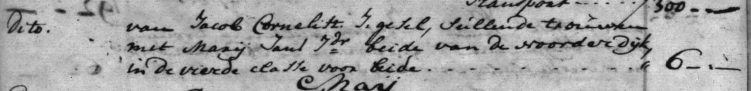 Transport .... 300 - -
dito. van Jacob Cornelisz J: gesel, Sullende trouwen
met Marij Jans J:dr beide van de noorderdijk,
in de vierde classe voor beide . . . . . . " 6 - . -
Maij